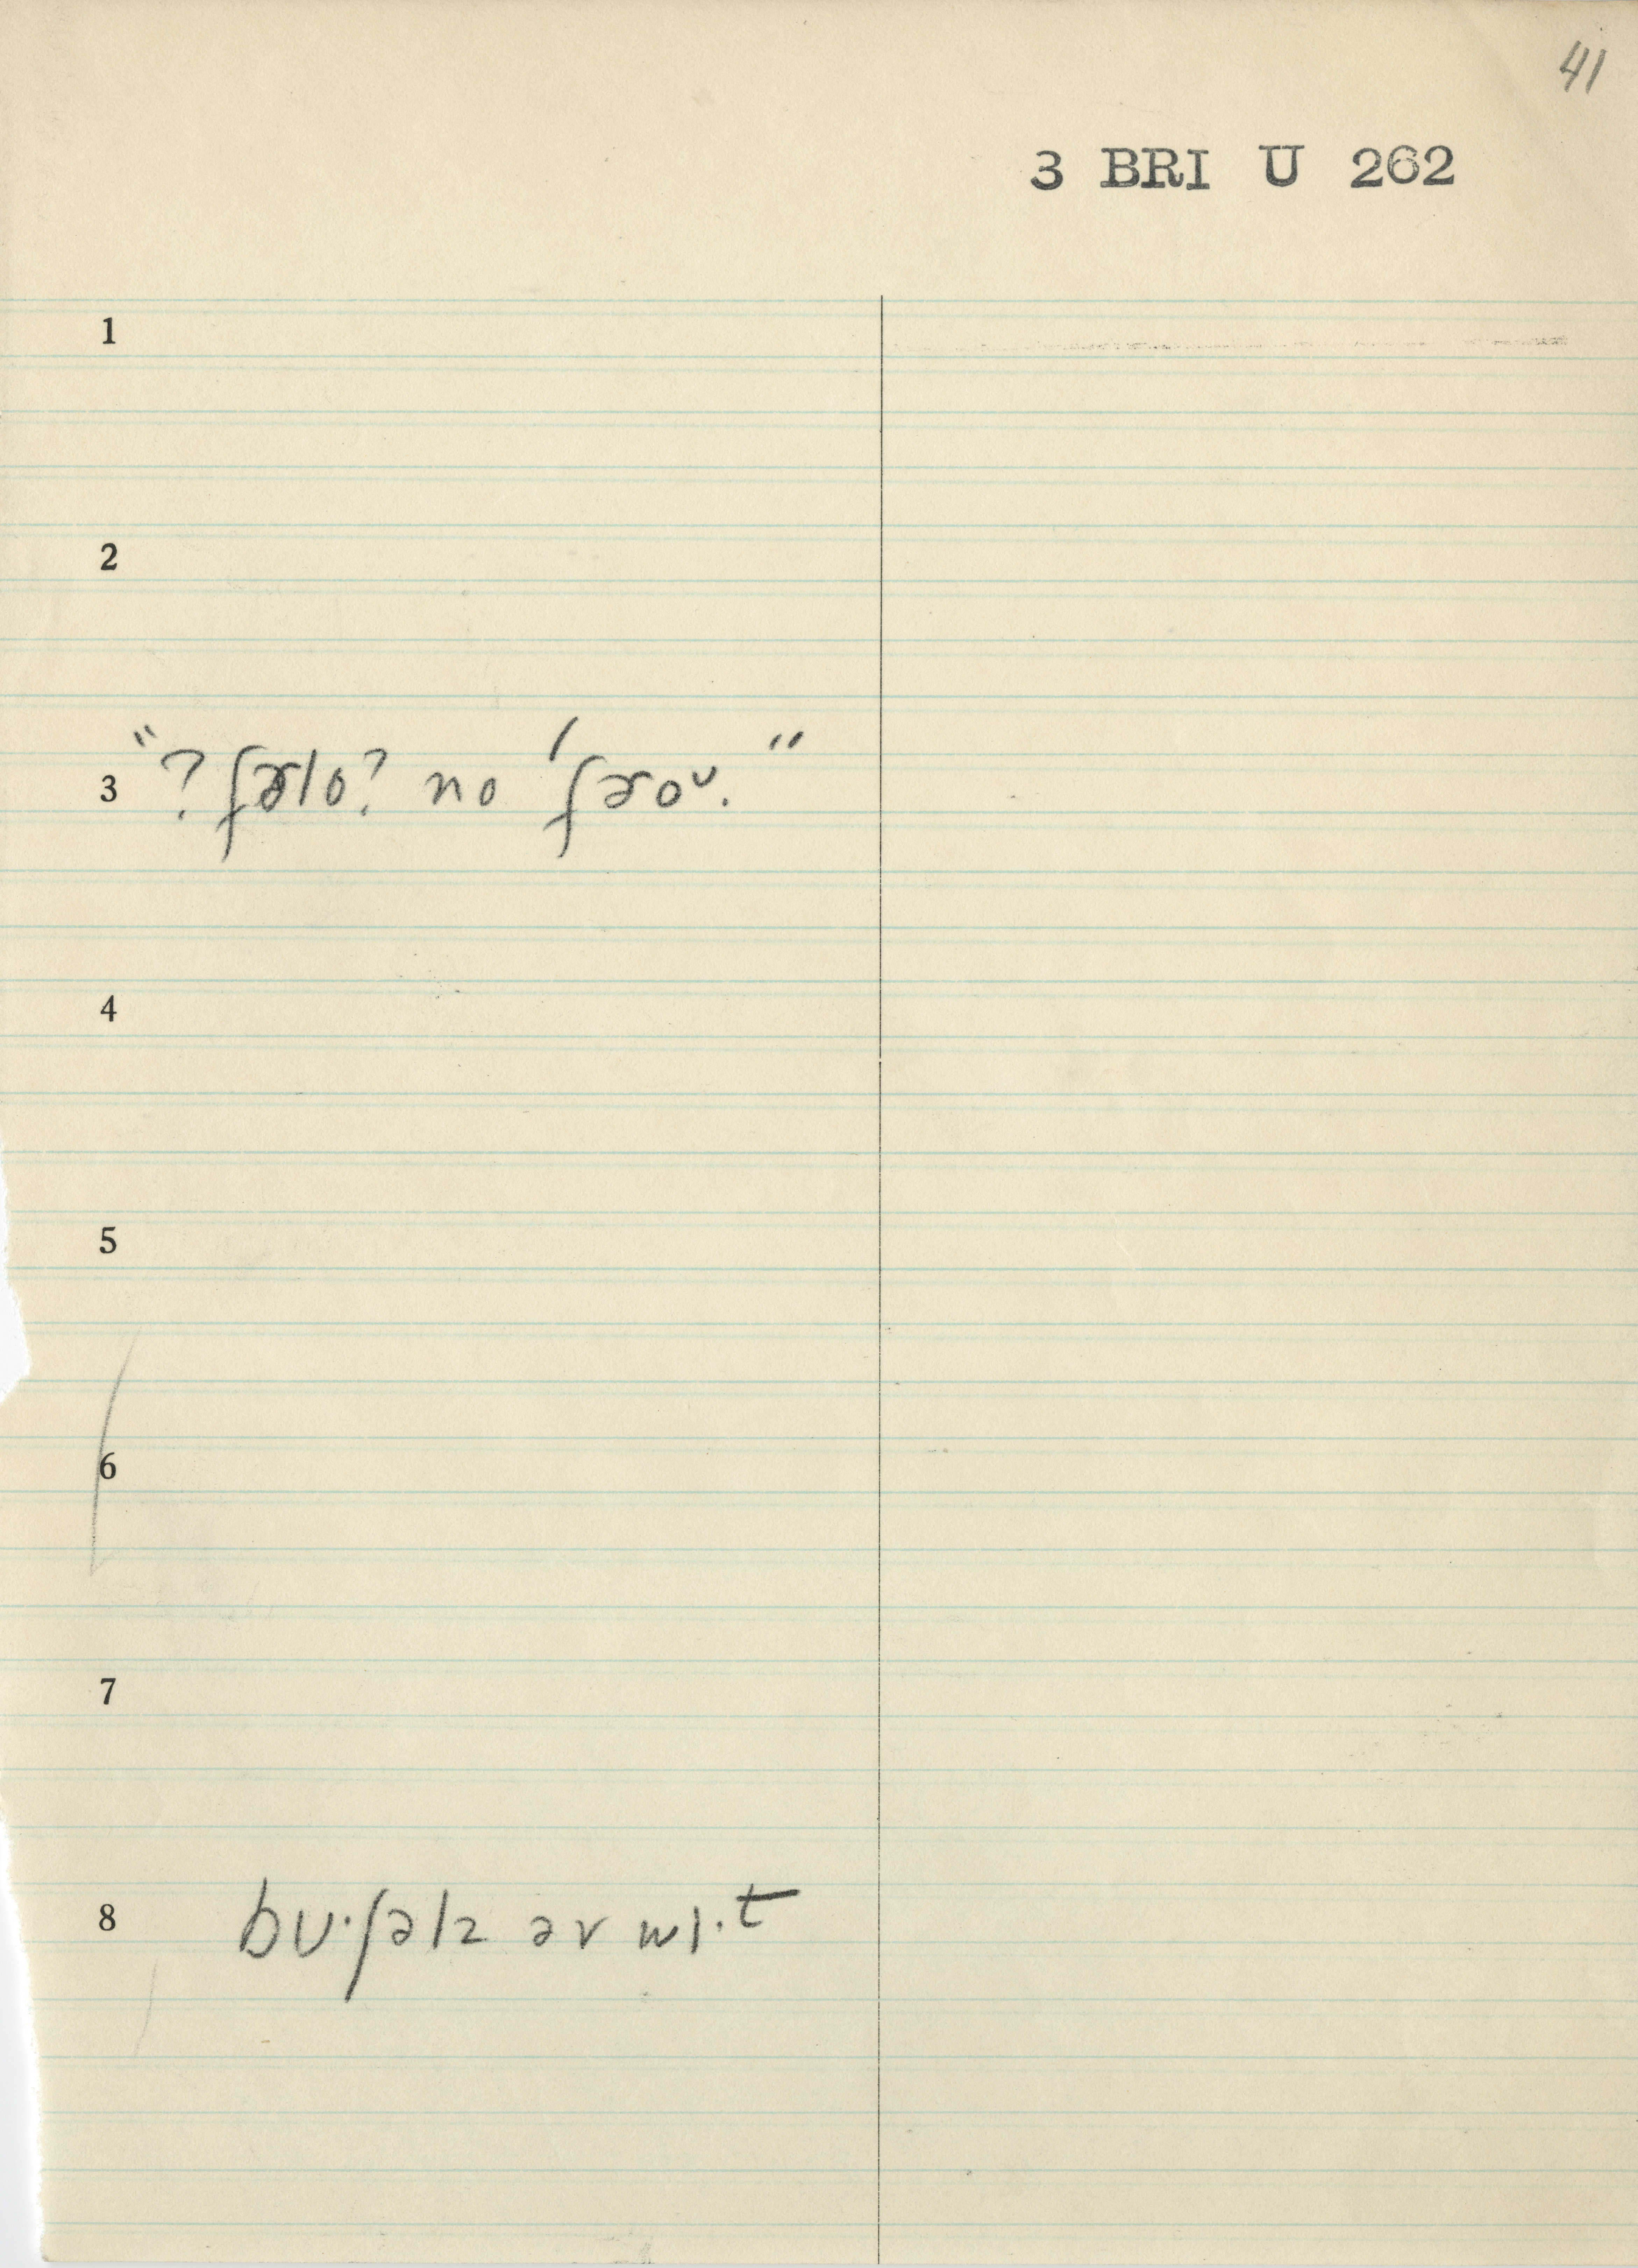 41
3 BRI U 262
1
2
3 "? fɚlo? no ˈfɚoᴜ."
4
5
6
7
8 bʊ·ʃəlz əv wɪ·t